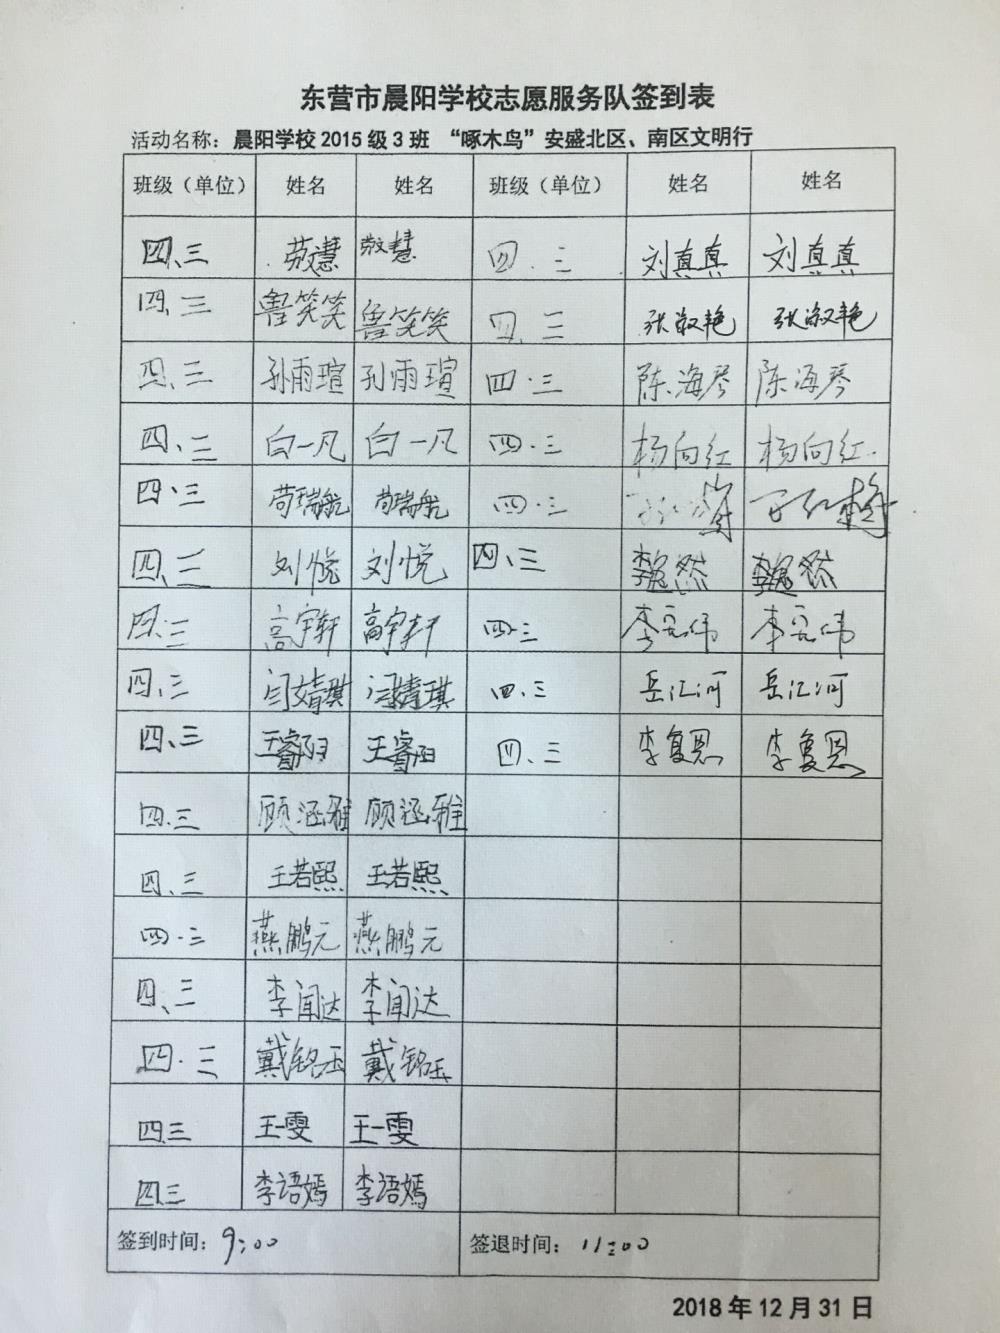 东营市晨阳学校志愿服务队签到表
活动名称：晨阳学校2015级3班 “啄木鸟”安盛北区、南区文明行
班级（单位） 姓名 姓名 班级（单位） 姓名 姓名
四、三 苏文慧 苏文慧 四.三 刘真真 刘真真
四、三 鲁笑笑 鲁笑笑 四、三 张淑艳 张淑艳
四、三 孙雨瑄 孙雨瑄 四·三 陈海琴 陈海琴
四、三 白一凡 白一凡 四·三 杨向红 杨向红
四、三 苟瑞航 苟瑞航 四·三
四、三 刘悦 刘悦 四、三
四.三 高宇轩 高宇轩 四.三 李宪伟 李宪伟
四、三 闫婧琪 闫婧琪 四.三 岳汇河 岳汇河
四、三 王睿阳 王睿阳 四、三 李复恩 李复恩
四.三 顾涵雅 顾涵雅
四、三 王若熙 王若熙
四.三 燕鹏元 燕鹏元
四、三 李闻达 李闻达
四·三 戴铭玉 戴铭玉
四三 王一雯 王一雯
四三 李语嫣 李语嫣
签到时间：9:00 签退时间：11:00
2018年12月31日